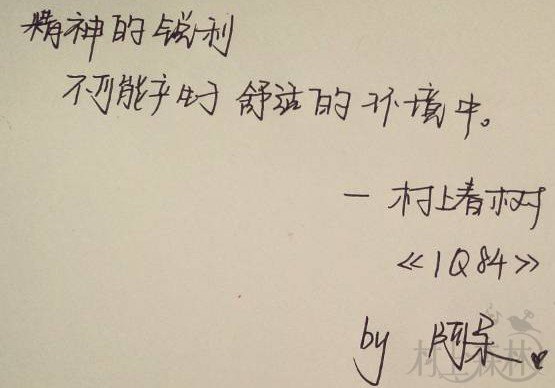 精神的锐利
不可能产生于舒适的环境中。
— 村上春树
《1Q84》
by 阿朵
村上森林